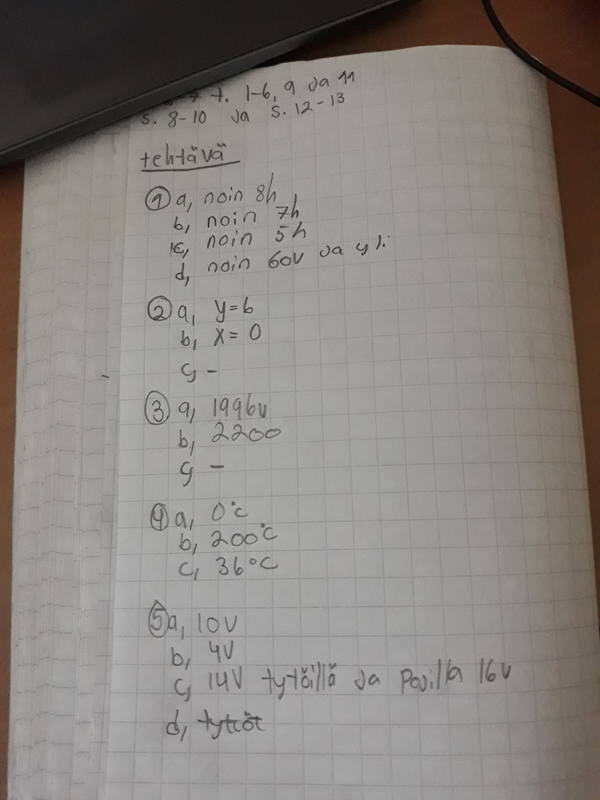 t. 1-6, 9 ja 11
s. 8-10 ja s. 12-13
tehtävä
① a, noin 8h
b, noin 7h
c, noin 5h
d, noin 60v ja yli
② a, y=6
b, x=0
c, -
③ a, 1996v
b, 2200
c, -
④ a, 0°c
b, 200°C
c, 36°C
⑤ a, 10v
b, 4v
c, 14v tytöillä ja pojilla 16v
d, tytöt